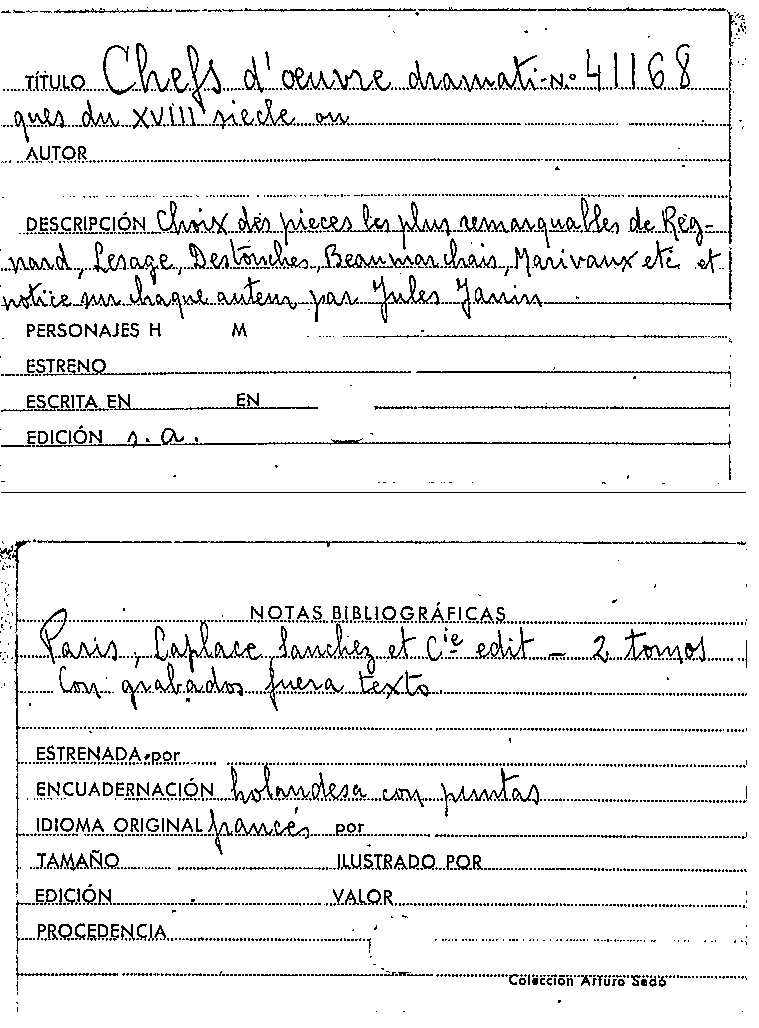 TÍTULO Chefs d'oeuvre dramati- N.º 41168
ques du XVIII siecle ou
AUTOR
DESCRIPCIÓN Choix des pieces les plus remarquables de Reg-
nard, Lesage, Destouches, Beaumarchais, Marivaux etc et
notice sur chaque auteur par Jules Janin
PERSONAJES H M
ESTRENO
ESCRITA EN EN
EDICIÓN s.a.
NOTAS BIBLIOGRÁFICAS
Paris, Laplace, Sanchez et Cie edit - 2 tomos
Con grabados fuera texto
ESTRENADA por
ENCUADERNACIÓN holandesa con puntas
IDIOMA ORIGINAL francés por
TAMAÑO ILUSTRADO POR
EDICIÓN VALOR
PROCEDENCIA
Colección Arturo Sedó